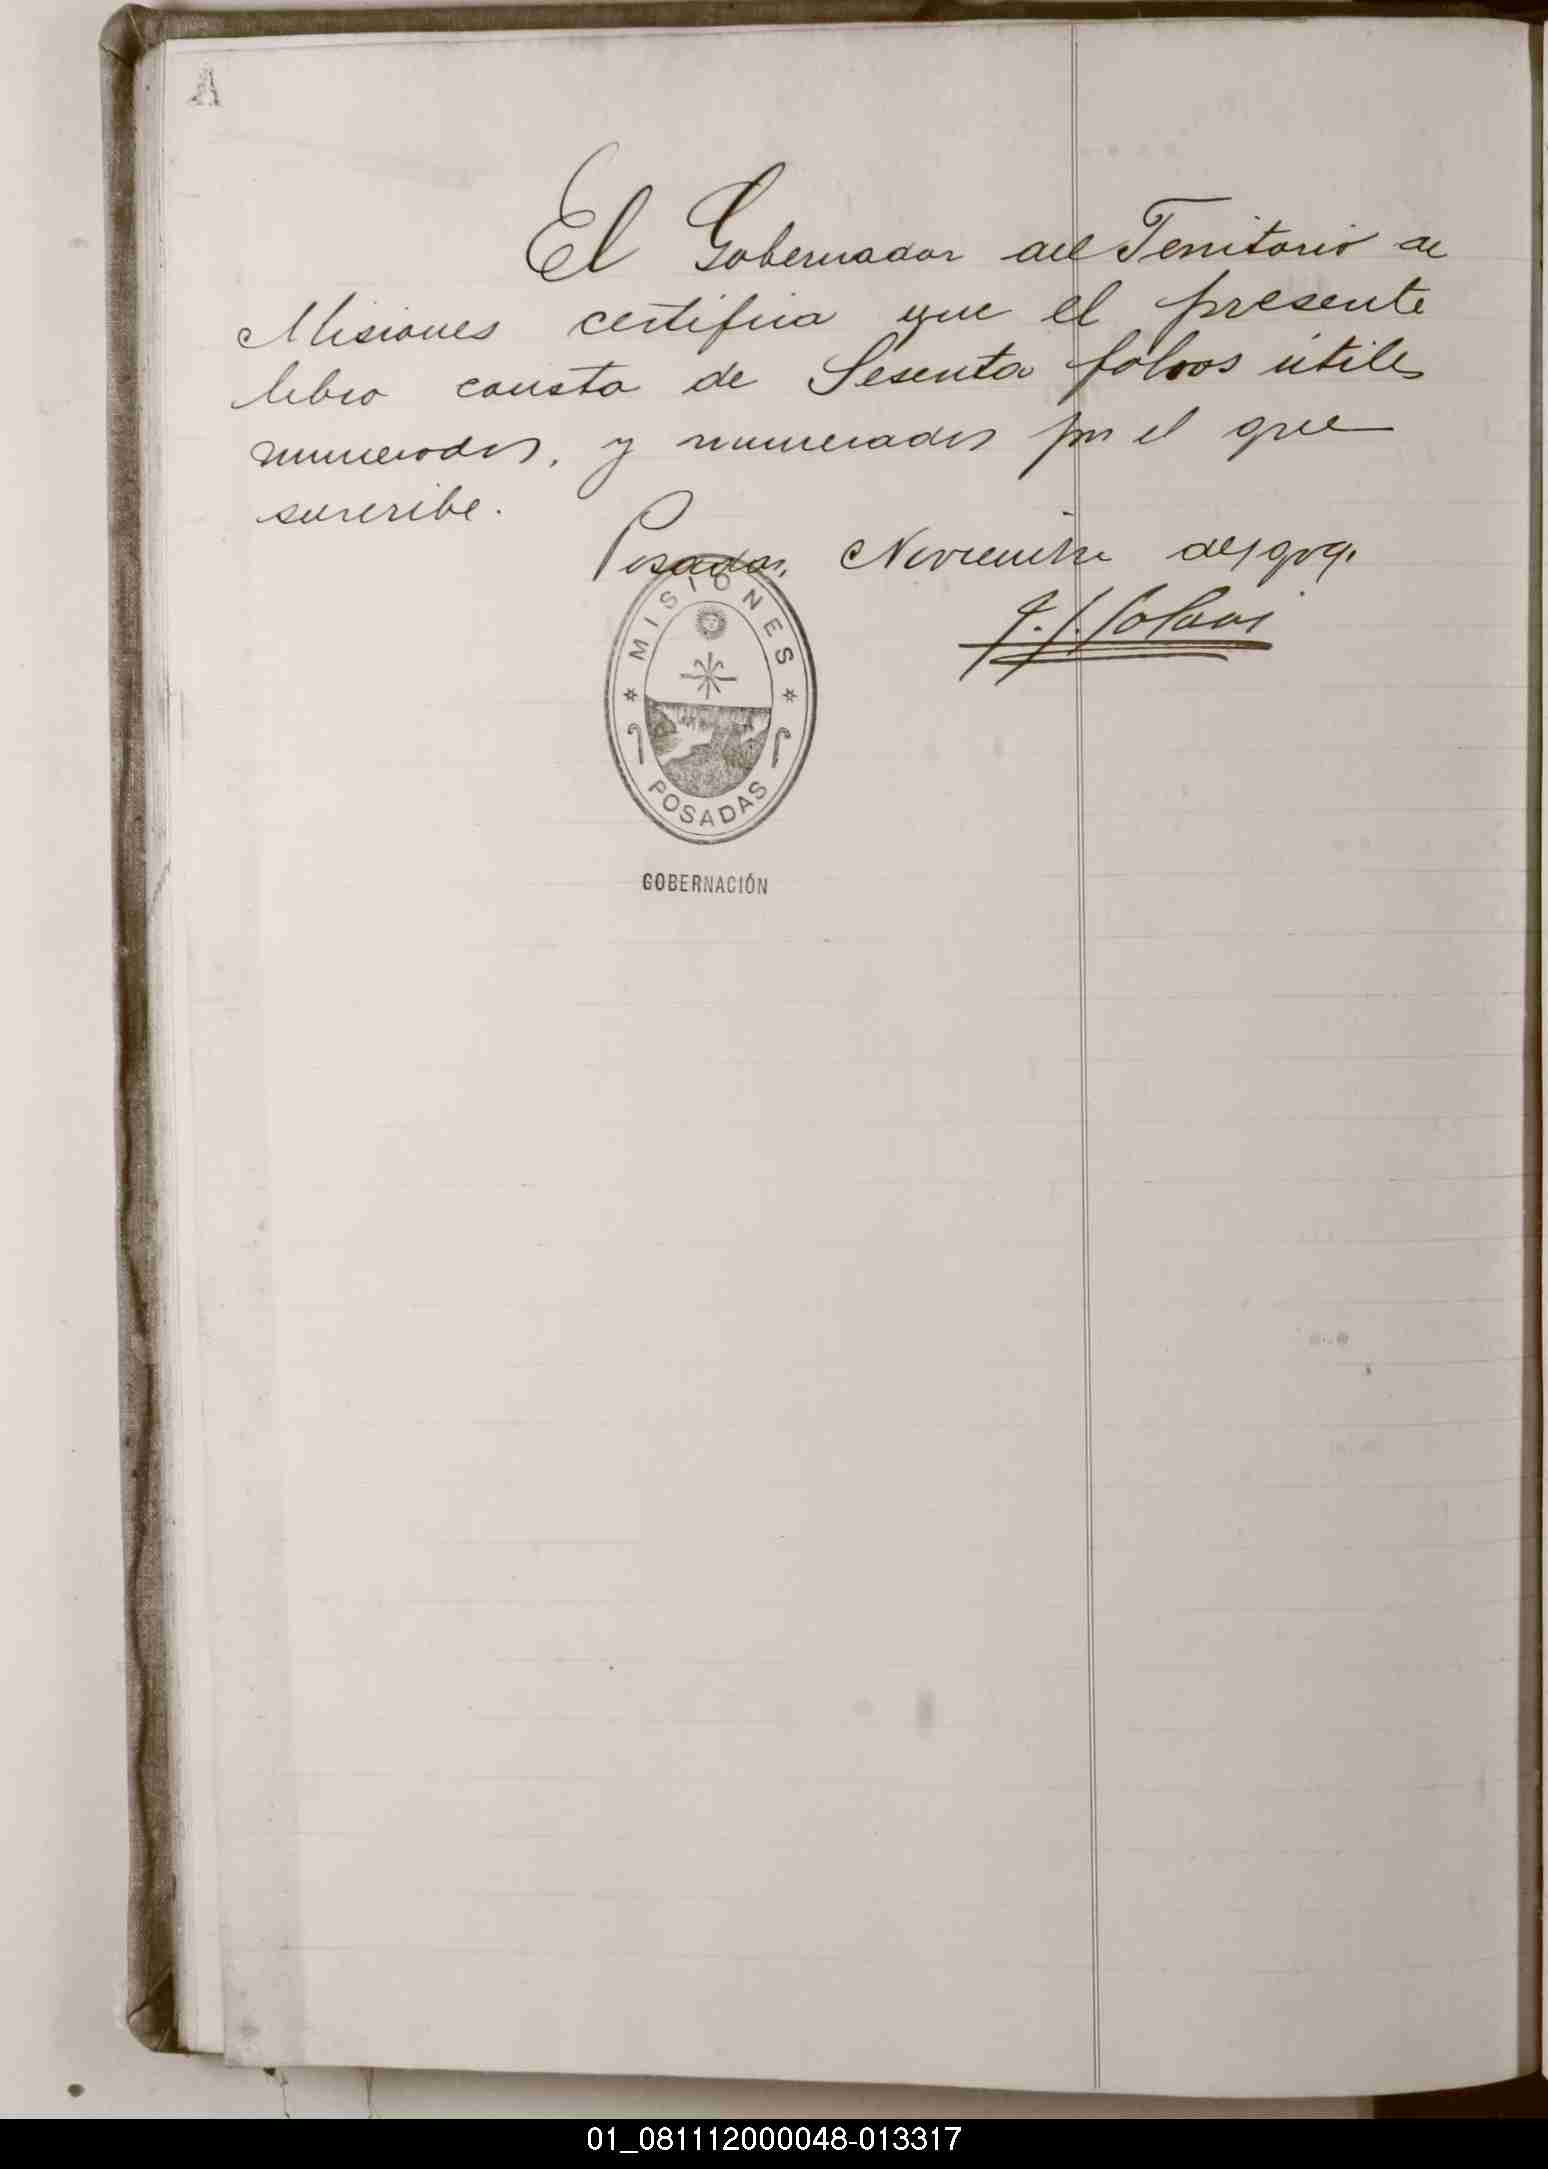 El Gobernador del Territorio de
Misiones certifica que el presente
libro consta de Sesenta folios útiles
numerados, y numerados por el que
suscribe.
Posadas, Noviembre de 1909.
MISIONES
POSADAS
GOBERNACIÓN
01_081112000048-013317